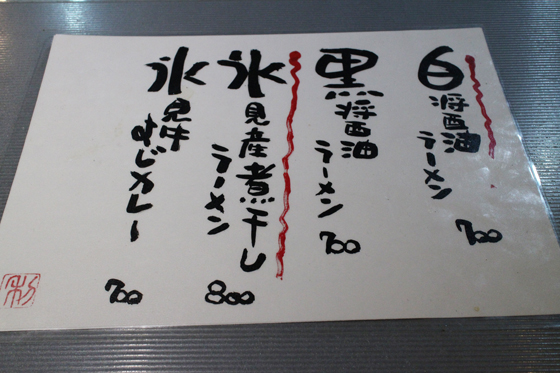 白醤油
ラーメン
700
黒醤油
ラーメン
700
氷見産煮干し
ラーメン
800
氷見牛
すじカレー
700